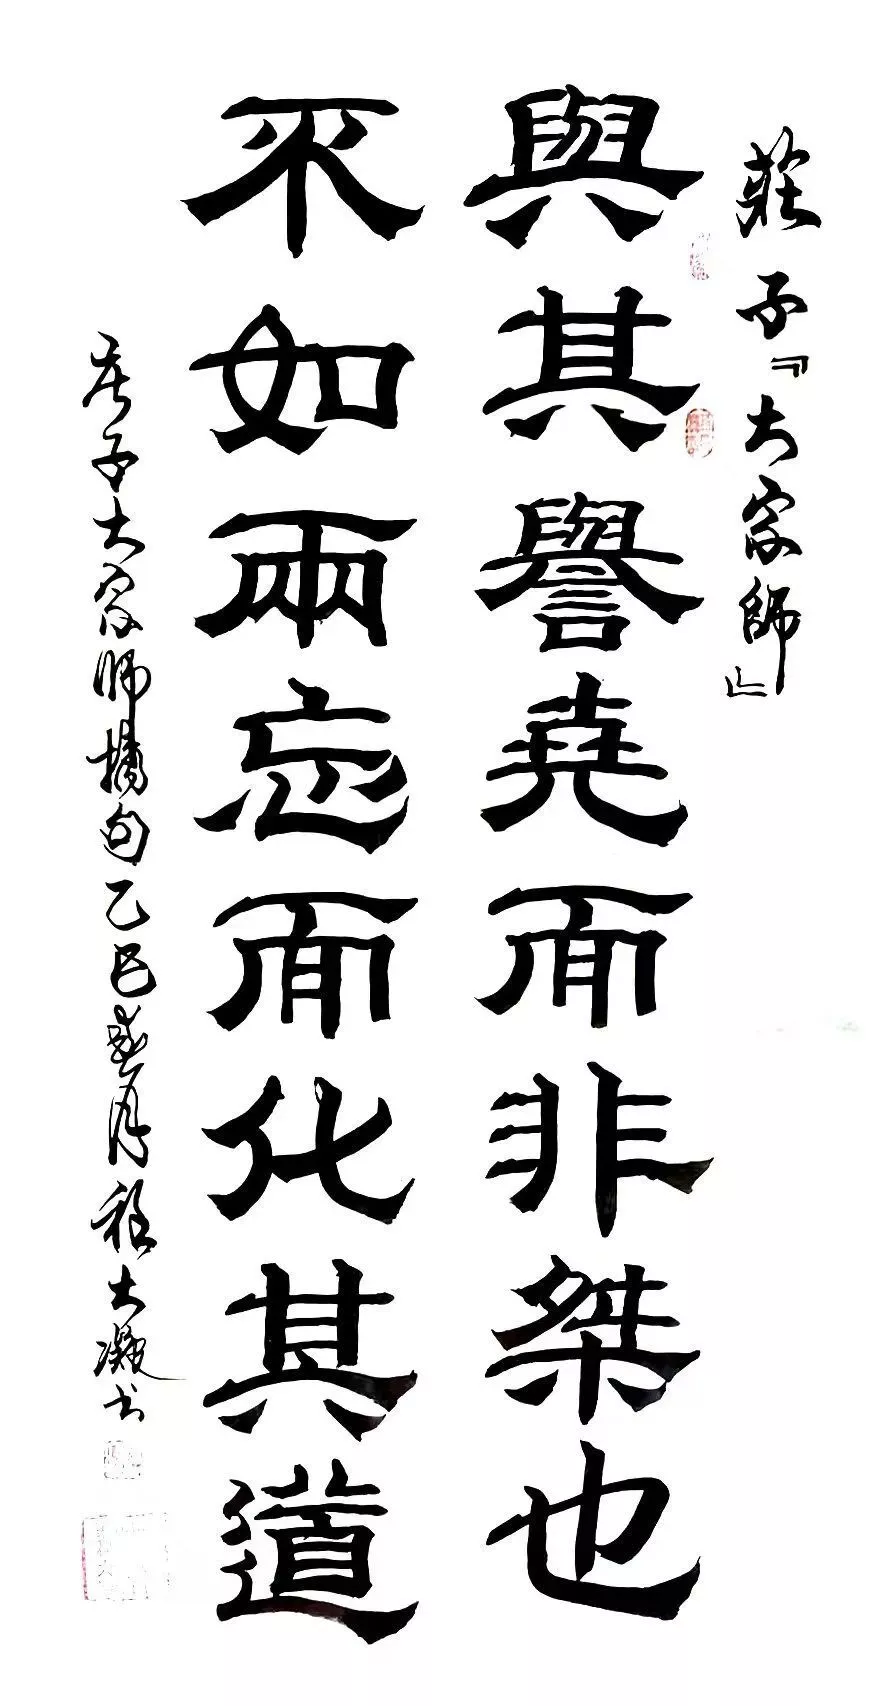 莊子『大宗師』
與其譽堯而非桀也
不如兩忘而化其道
莊子大宗師摘句乙巳月程大凝书